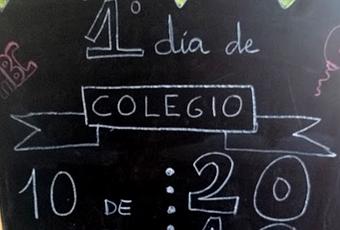 1º día de
COLEGIO
10 DE
20